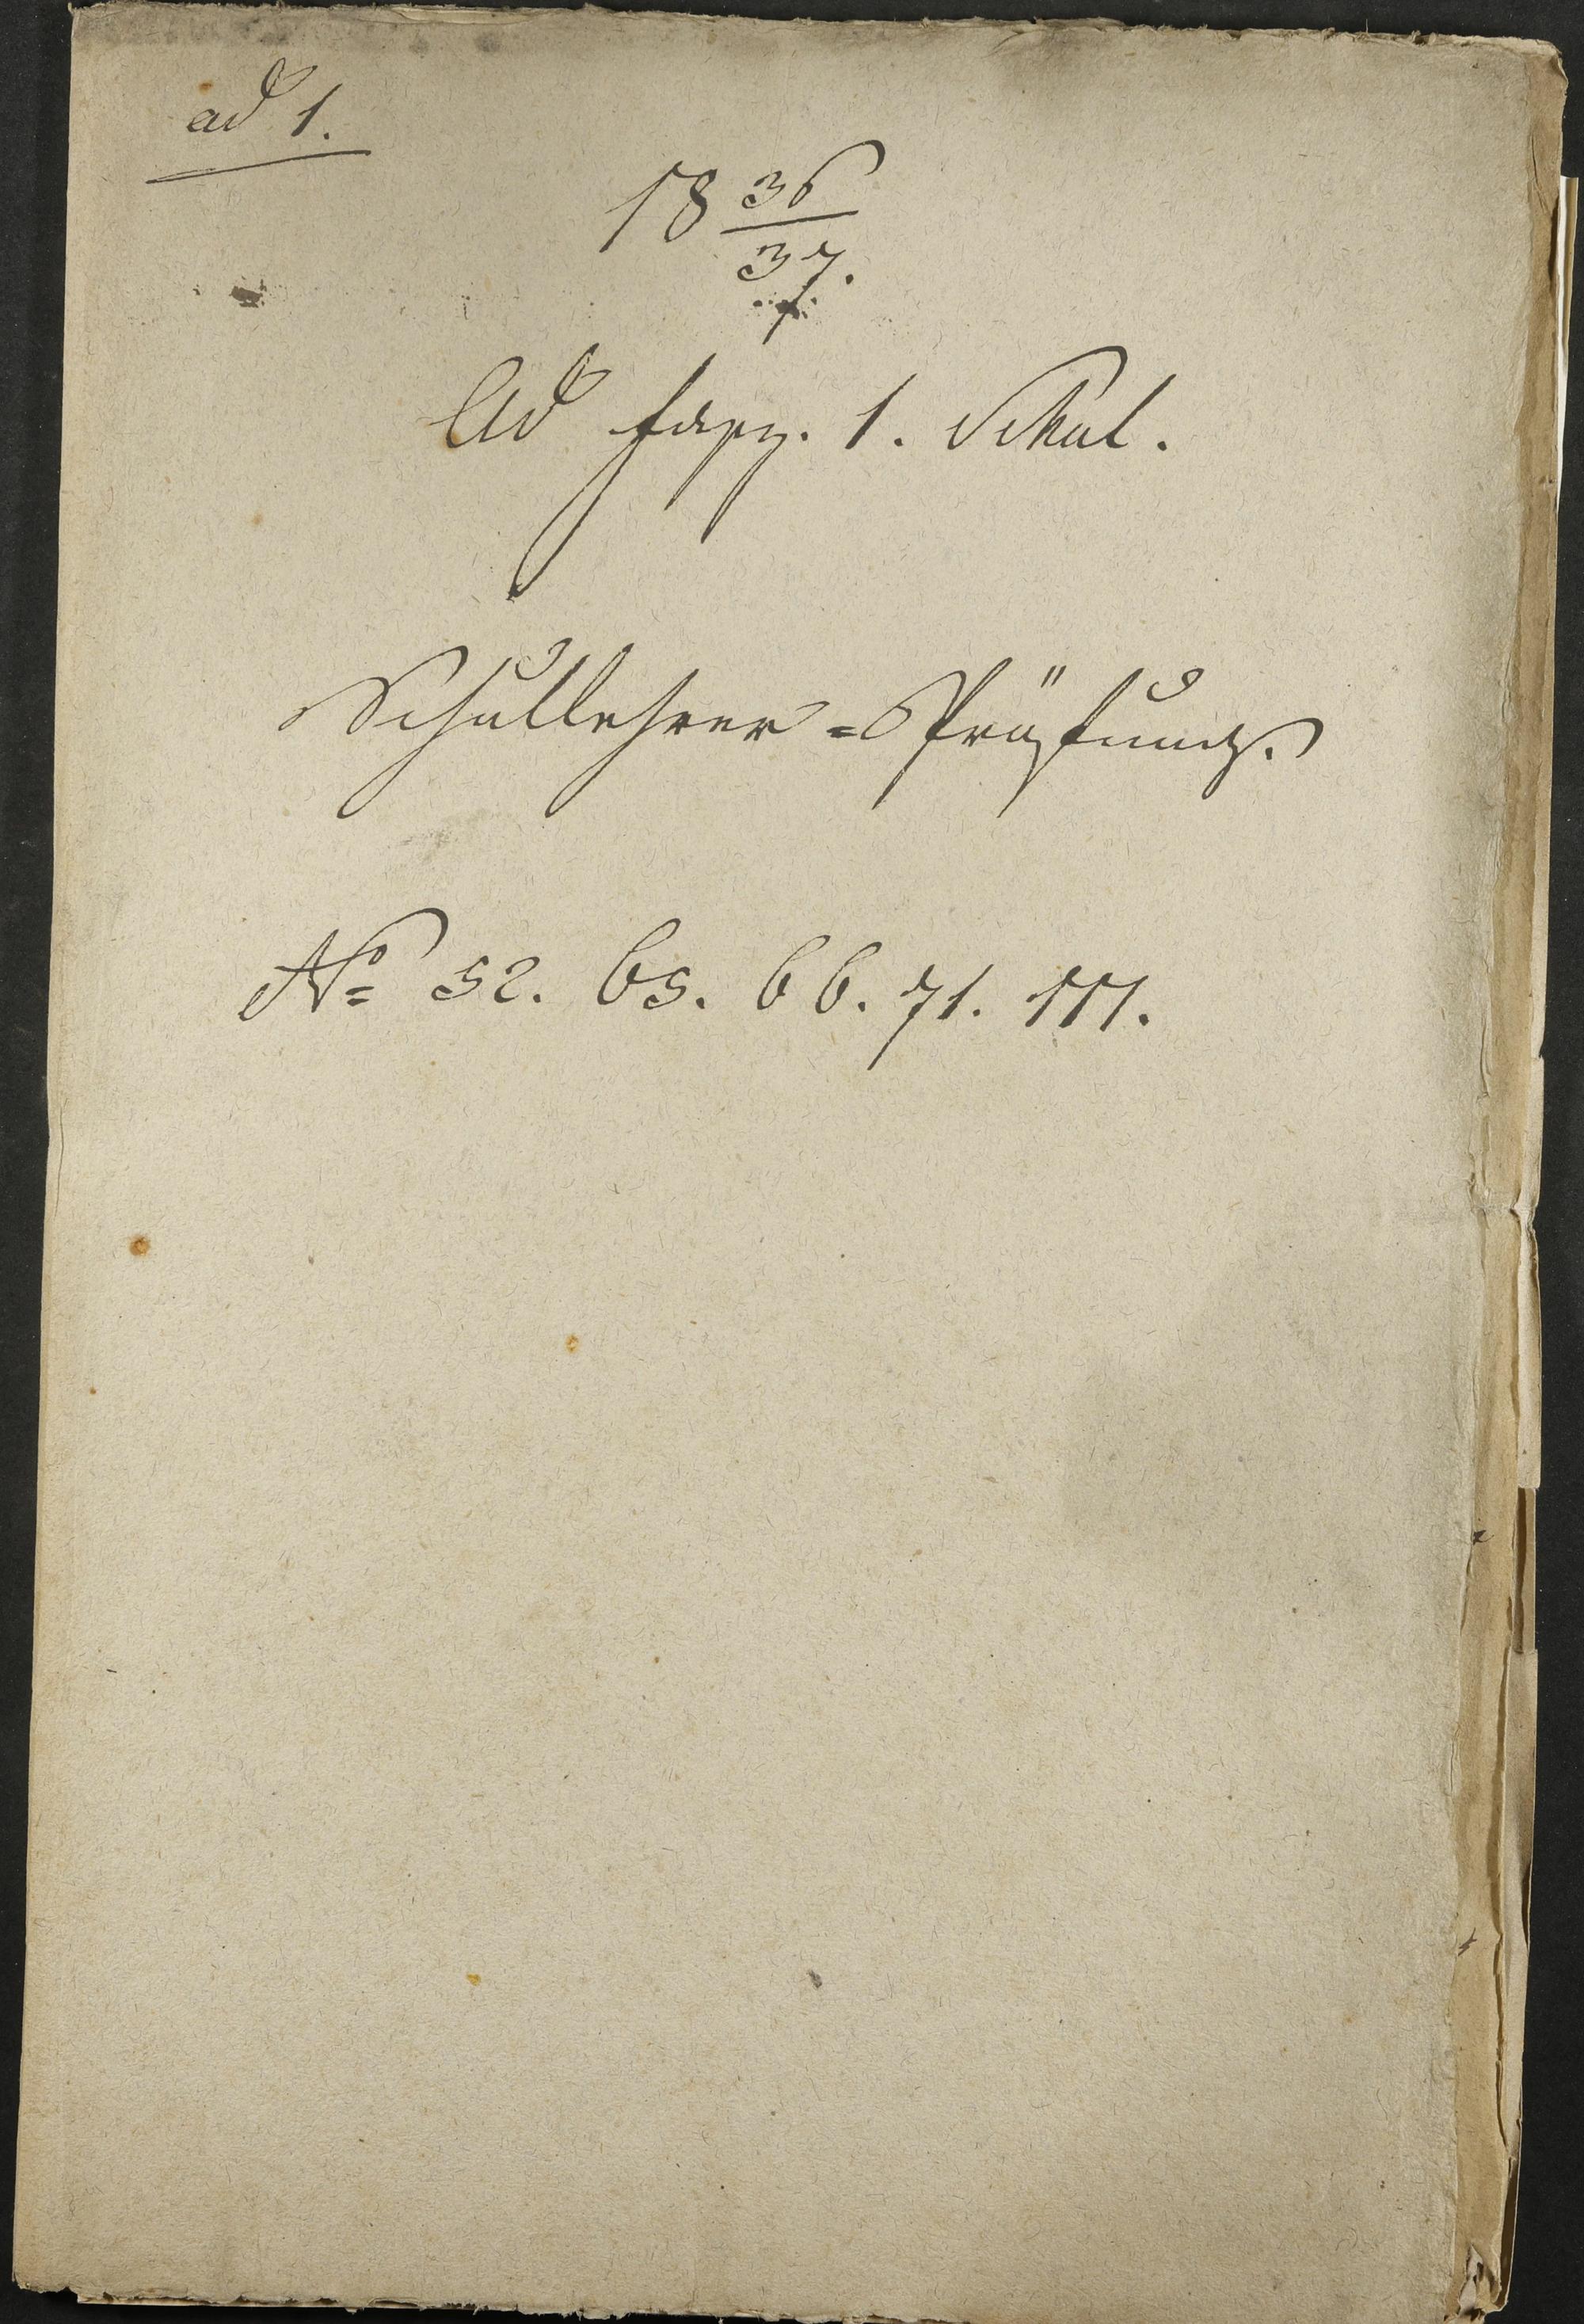 ad 1.
18 36/37.
Ad fasz. 1. Schul.
Schullehrer-Prüfung.
No 52. 65. 66. 71. 111.